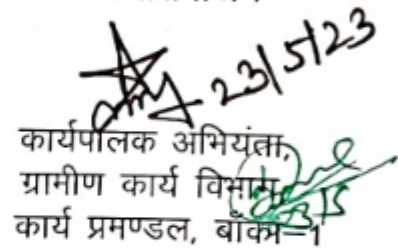 23/5/23
कार्यपालक अभियंता,
ग्रामीण कार्य विभाग,
कार्य प्रमण्डल, बाँका-1